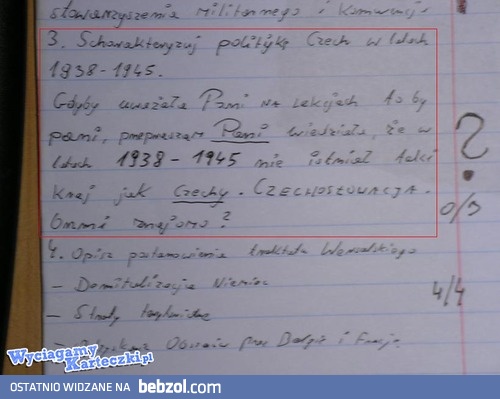 stowarzyszenia militarnego i
3. Scharakteryzuj politykę Czech w latach
1938-1945.
Gdyby uważała Pani na lekcjach to by
pani, przepraszam Pani wiedziała, że w
latach 1938-1945 nie istniał taki
kraj jak Czechy. CZECHOSŁOWACJA.
znajomo?
?
0/3
4. Opisz postanowienia traktatu Wersalskiego
- Demilitalizacja Niemiec
4/4
- Straty
i
Wyciagamy
Karteczki.pl
OSTATNIO WIDZANE NA bebzol.com